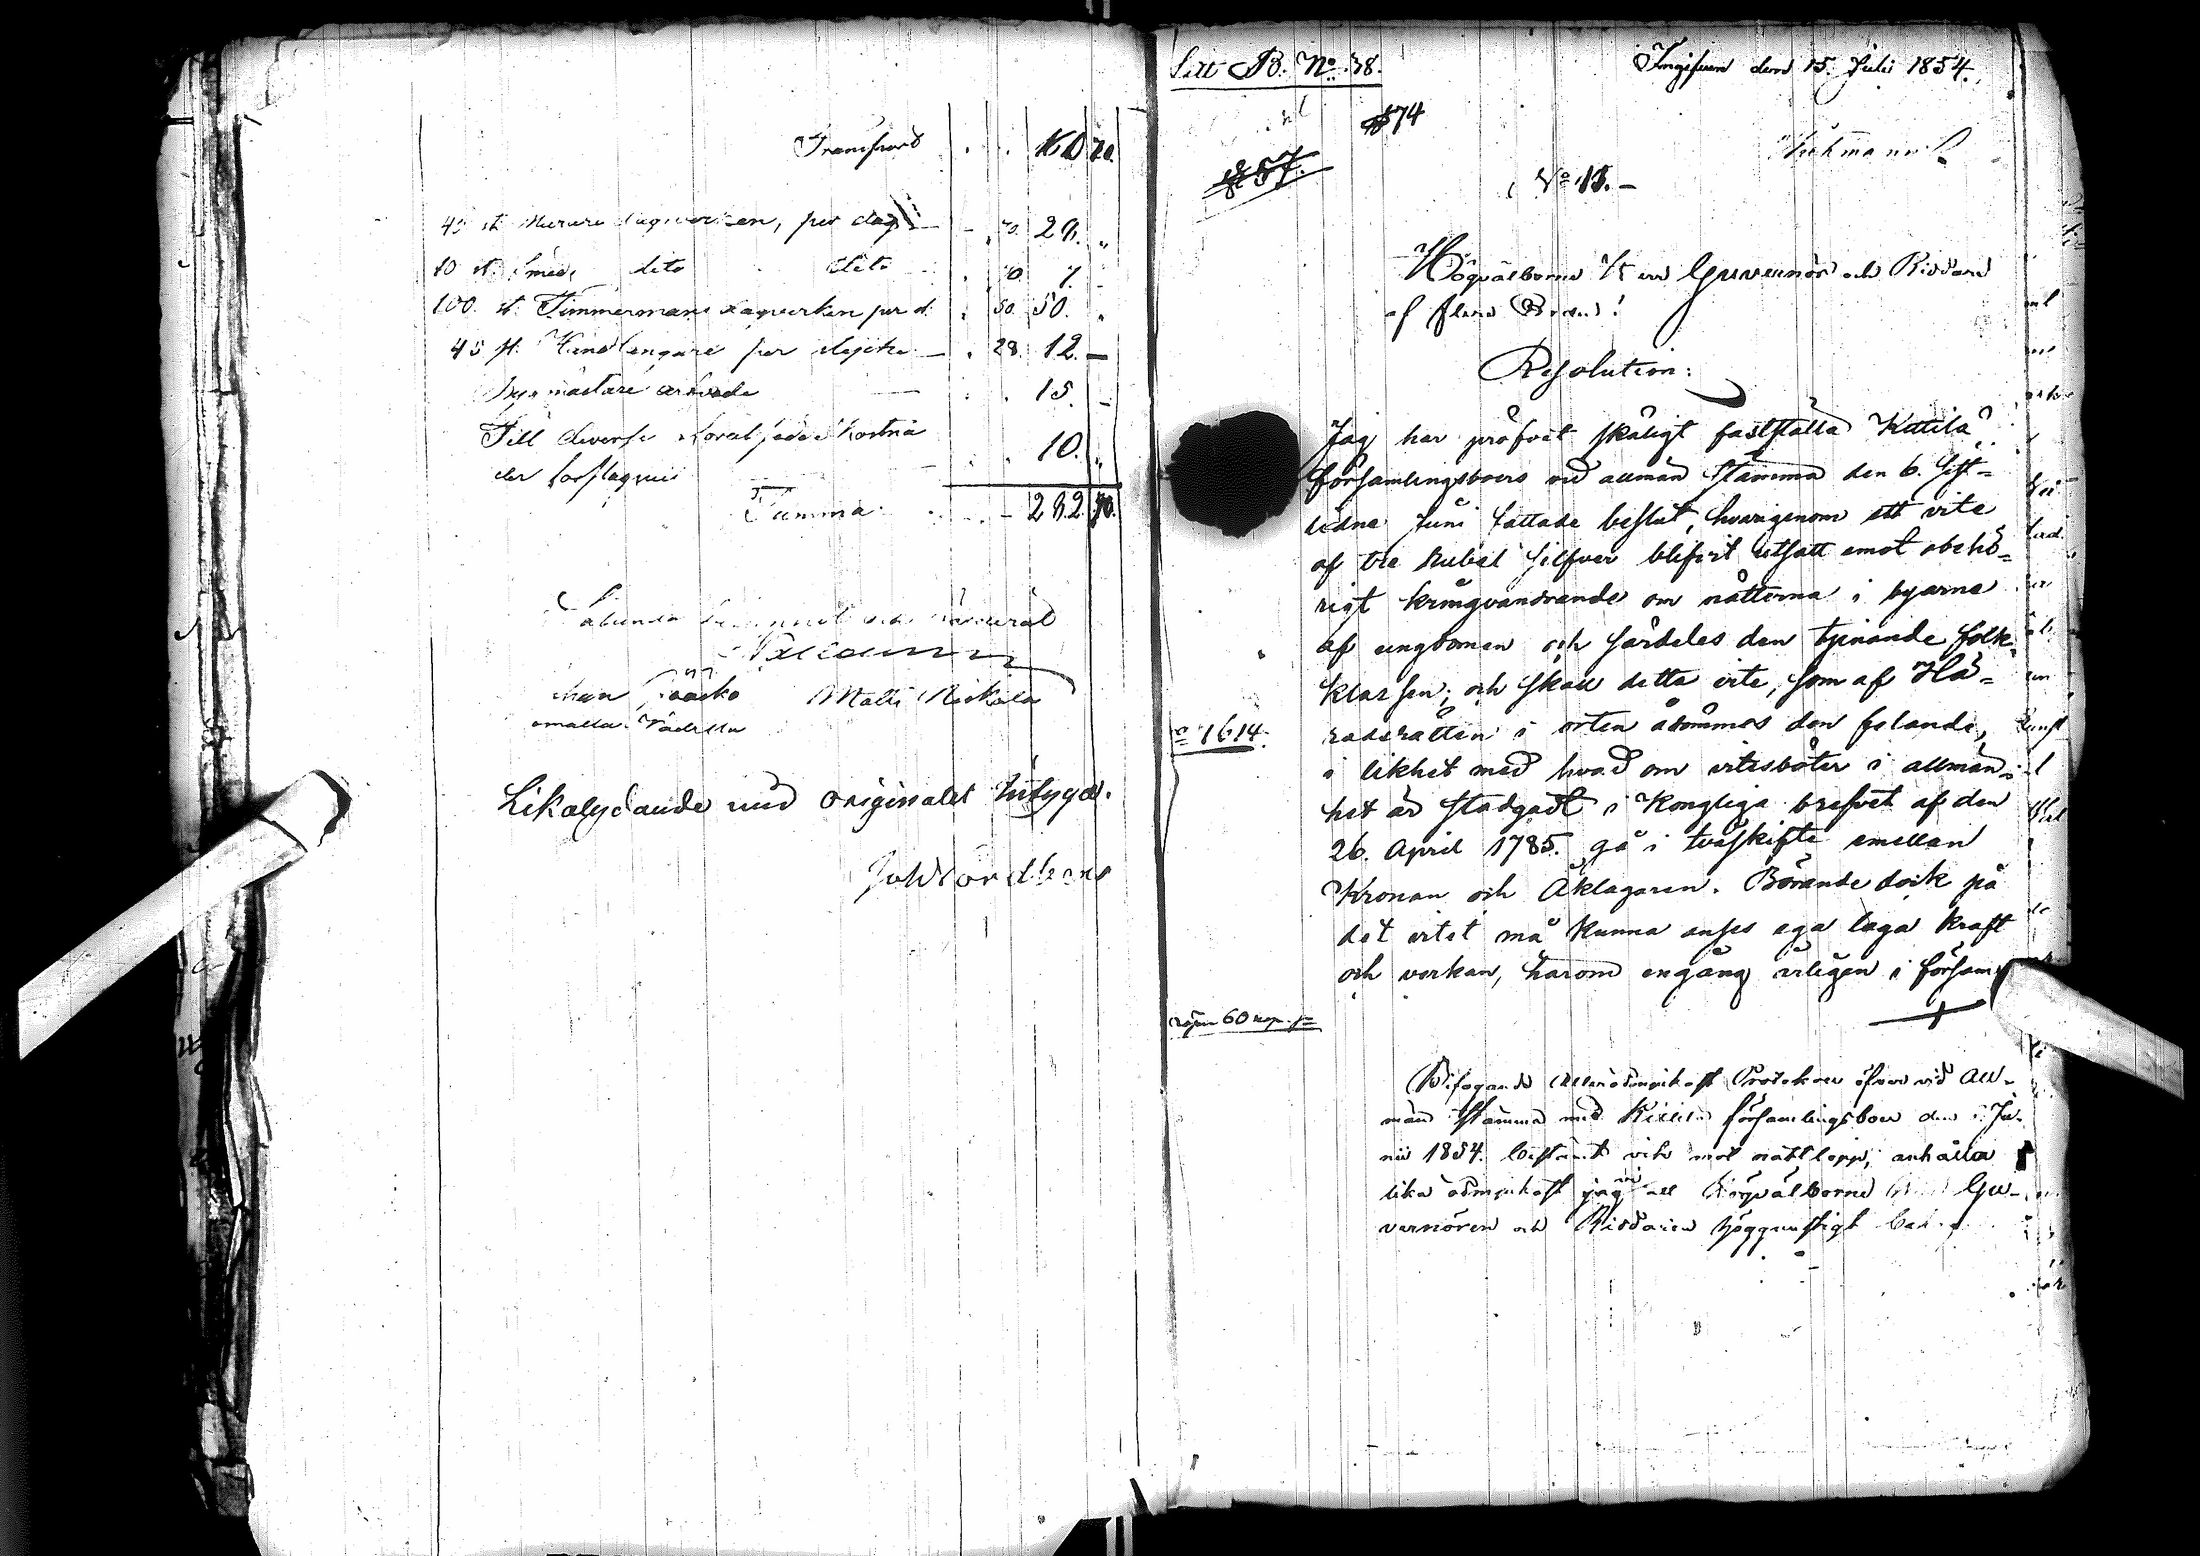 Transport
45 st Murare dagsverken, per dag 70. 29.
10 st. Smeds dito dito 70 7.
100. st. Timmermans dagverken per d. 50. 50.
45 st. Handlangare per stycke 28. 12. —
Byggmästare arfvode 15. —
Till diverse
10.
Summa 70.
Matti Niskala
Likalydande med originalet betygar.
Litt B. No 38.
Ingifven den 15. Juli 1854.
74
No
Högvälborne Herr Guvernör och Riddare
af flere Ordnar!
Resolution:
Jag har pröfvat skäligt fastställa Kittilä
församlingsboers vid allmän stämma den 6. sist-
lidne Juni fattade beslut, hvarigenom ett vite
af tre Rubel Silfver blifvit utsatt emot obehö-
rigt kringvandrande om nätterna i byarne
af ungdomen och särdeles den tjenande folk-
klassen; och skall detta vite, som af Hä-
radsrätten i orten ådömmes den felande,
No 1614.
i likhet med hvad om vitesböter i allmän-
het är stadgadt i Kongliga brefvet af den
26. April 1785. gå i tvåskifte emellan
Kronan och Åklagaren. Börande dock på
det vitet må kunna anses ega laga kraft
och verkan, härom engång årligen i försam-
60 kop. s
Bifogande Allerödmjukast Protokoll öfver vid All-
män Stämma med Kittilä församlingsboer den Ju-
nii 1854. bestämt vite mot nattlopp, anhåller
lika ödmjukast jag att Högvälborne Herr Gu-
vernören och Riddaren höggunstigt